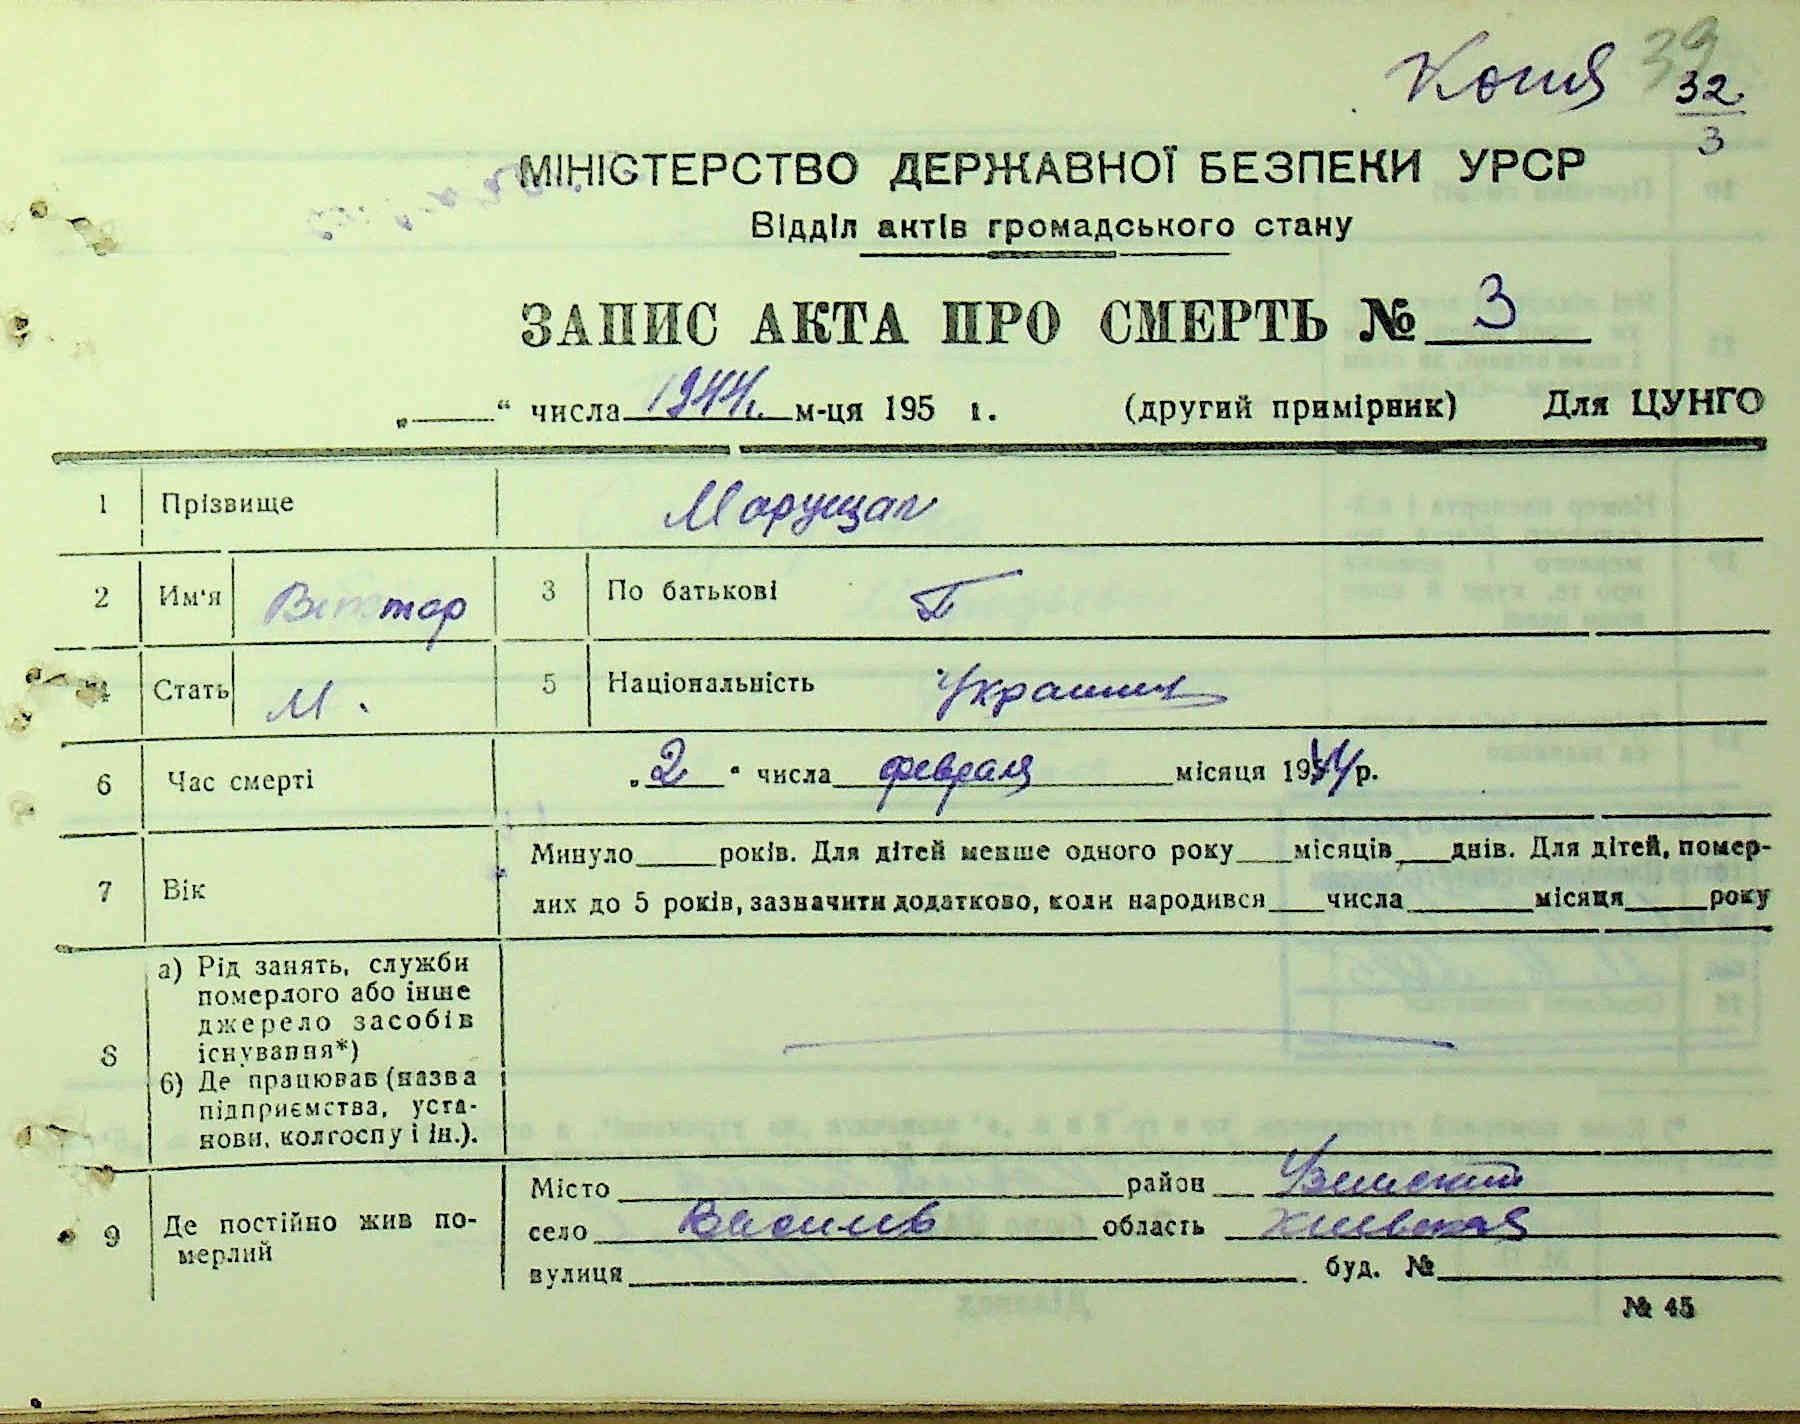 Копия 39
32
3
МІНІСТЕРСТВО ДЕРЖАВНОЇ БЕЗПЕКИ УРСР
Відділ актів громадського стану
ЗАПИС АКТА ПРО СМЕРТЬ № 3
„ “ числа 1944 г. м-ця 195 р. (другий примірник) Для ЦУНГО
1 Прізвище Марущак
2 Им'я Виктор 3 По батькові Г
4 Стать М. 5 Національність Украинец
6 Час смерті „2“ числа февраля місяця 1944 р.
7 Вік Минуло року. Для дітей менше одного року місяців днів. Для дітей, помер-
лих до 5 років, зазначити додатково, коли народився числа місяця року
8 а) Рід занять, служби
померлого або інше
джерело засобів
існування*)
б) Де працював (назва
підприємства, уста-
нови, колгоспу і ін.).
9 Де постійно жив по-
мерлий
Місто район Узинский
село Василев область Киевская
вулиця буд. №
№ 45